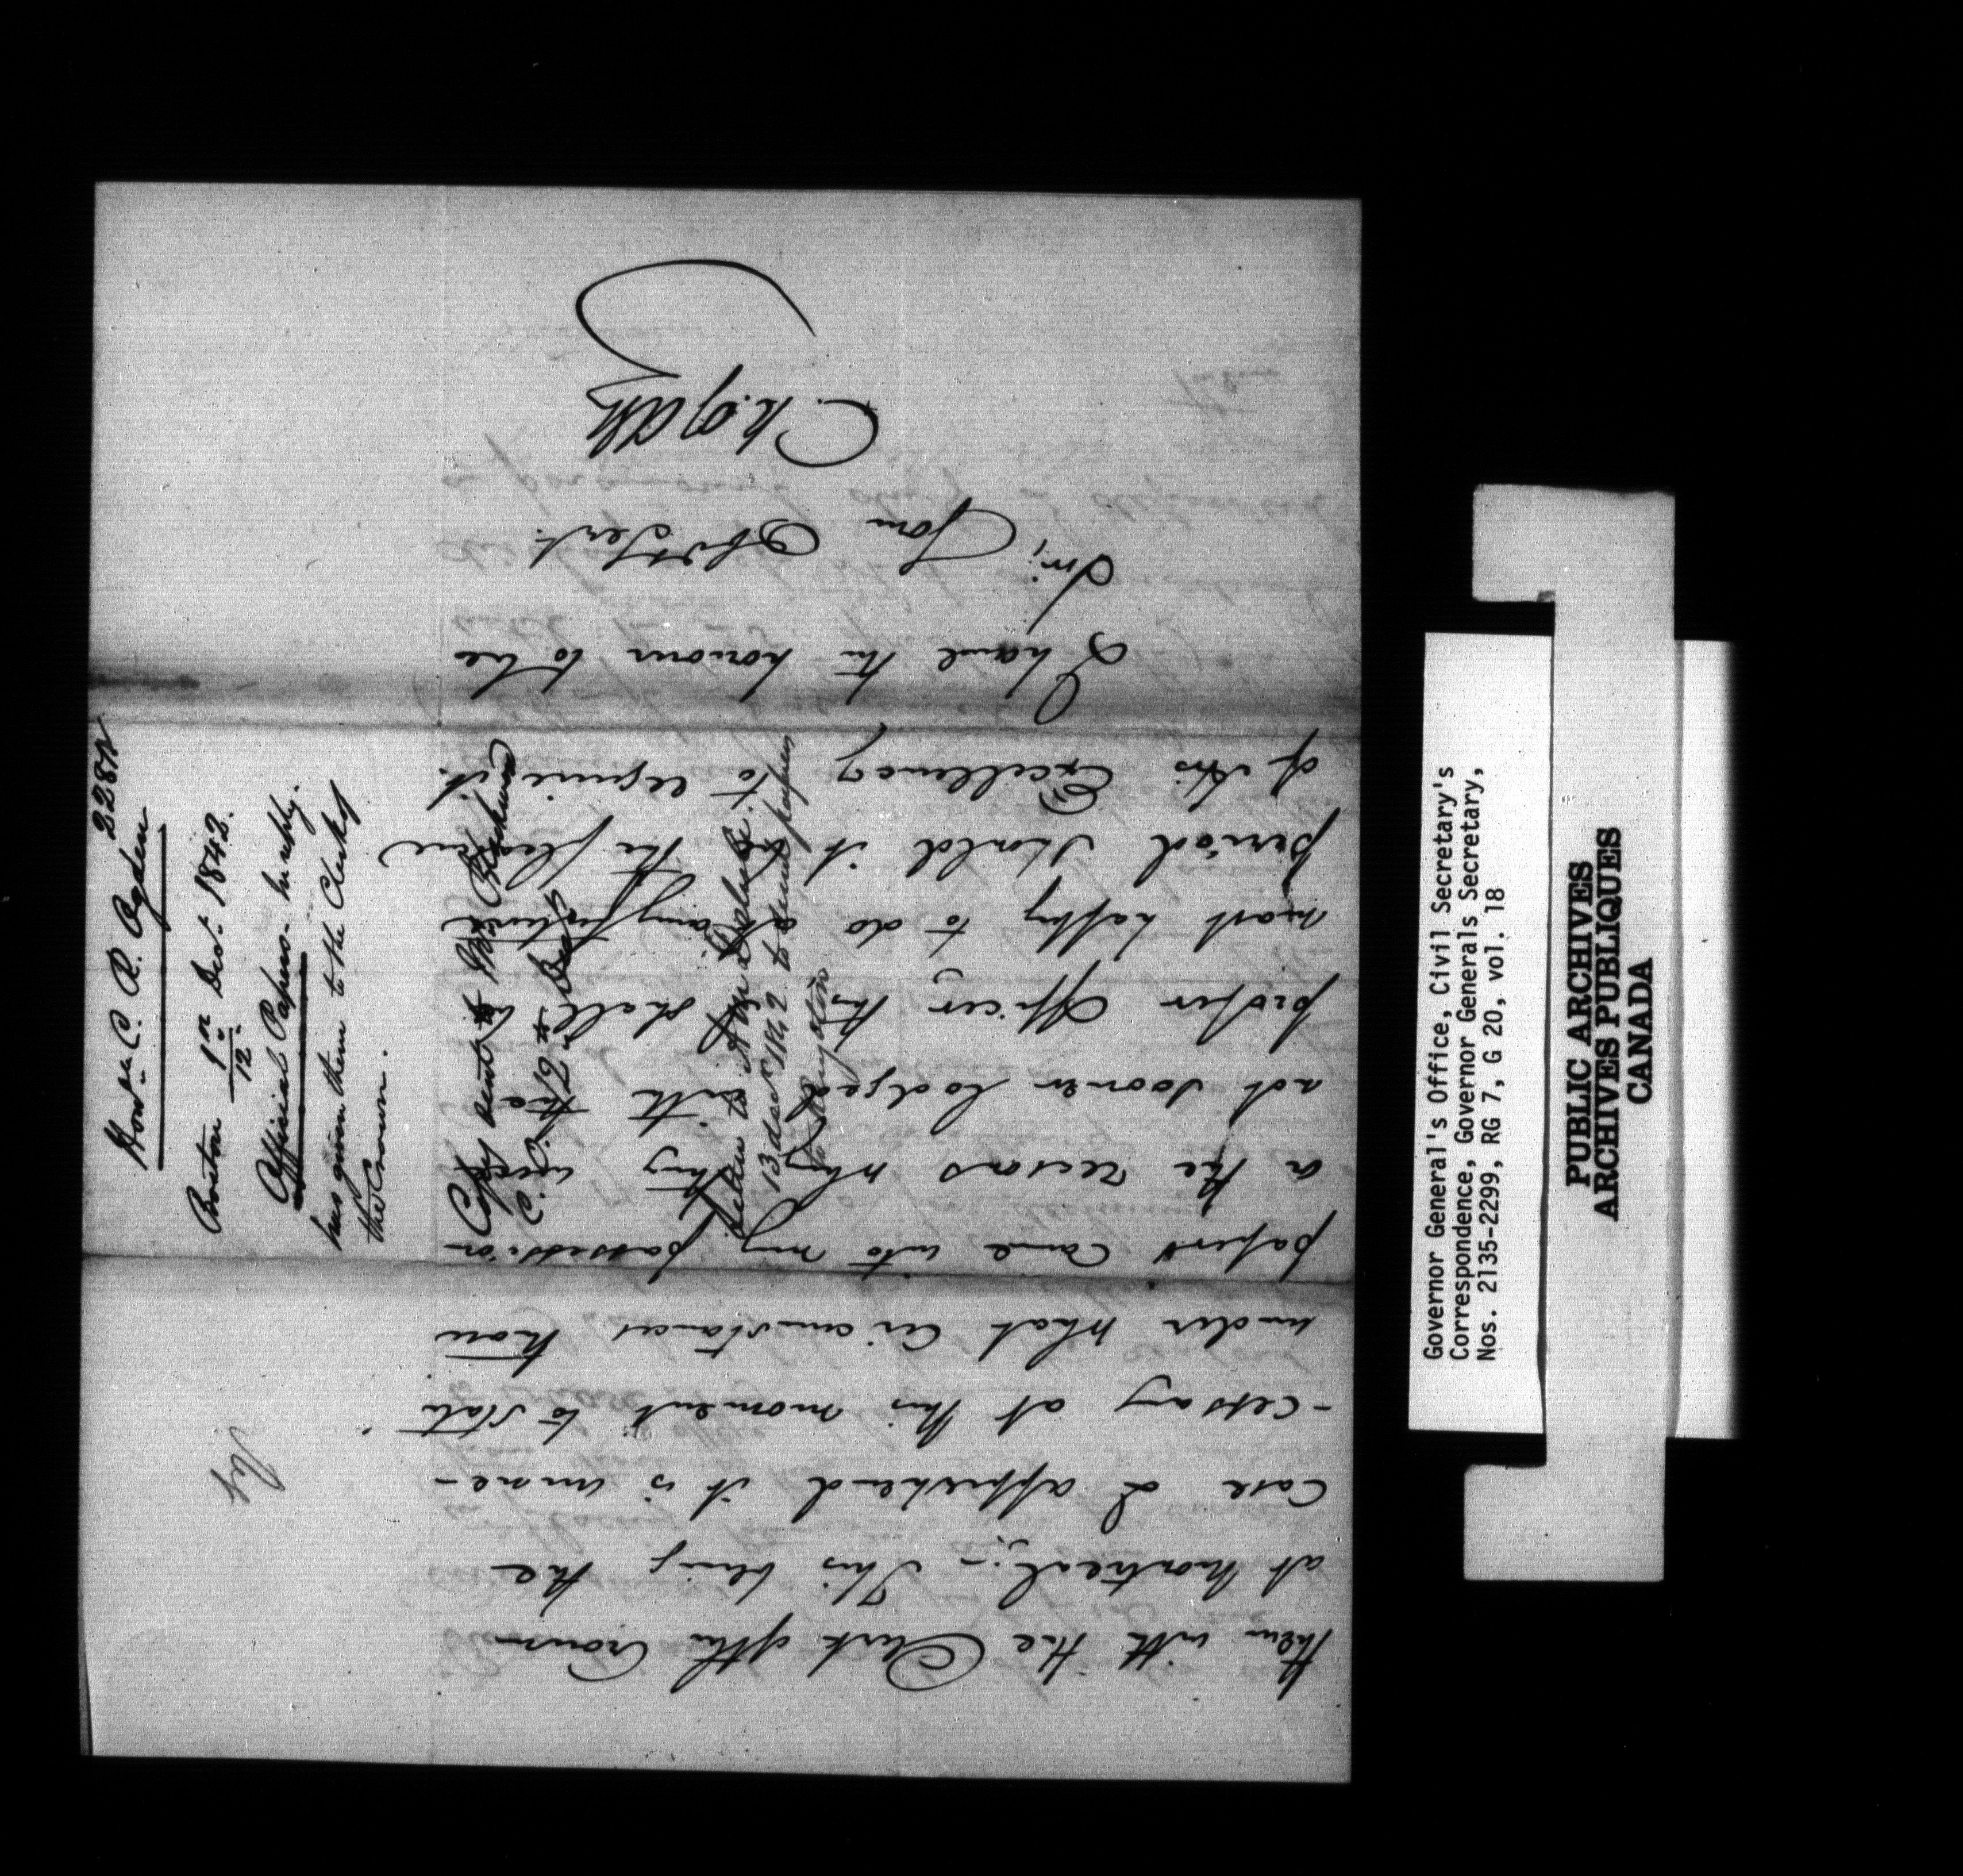 them with the Clerk of the Crown
at Montreal;- This being the
case I apprehend it is unne-
-cessary at this moment to state
under what circumstances, how
papers came into my possession
or the reasons why they were
not sooner lodged with the
proper officer, this I shall be
most happy to do at any future
period should it be the pleasure
of His Excellency to require it.
I have the honour to be
Sir,
Your Obdt Servt.
C. R. Ogden
2287
Honble C. R. Ogden
Boston 1st Decr 1842.
12
Official Papers - In reply.
has given them to the Clerk of
the Crown.
Copy sent to
C.
16
13 decr 1842 to
Kingston
Governor General's Office, Civil Secretary's
Correspondence, Governor Generals Secretary,
Nos. 2135-2299, RG 7, G 20, vol. 18
PUBLIC ARCHIVES
ARCHIVES PUBLIQUES
CANADA